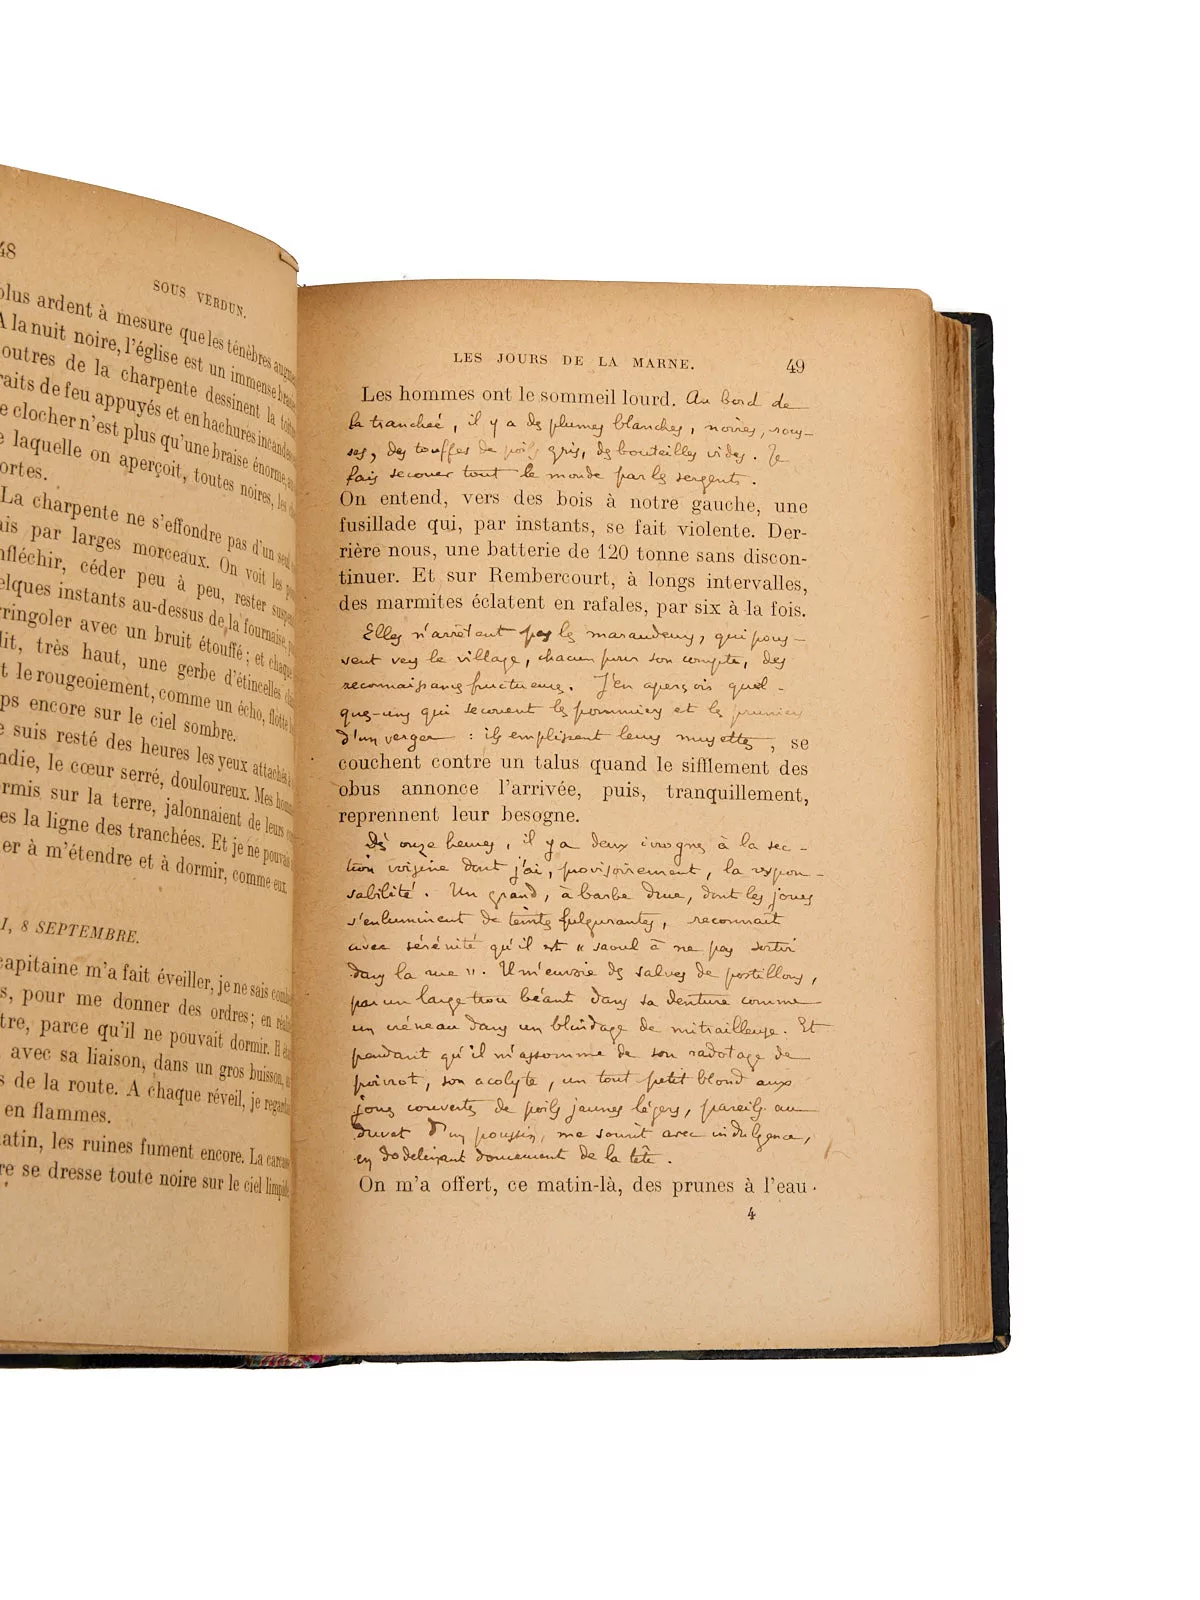 48
SOUS VERDUN.
plus ardent à mesure que les ténèbres augm
A la nuit noire, l'église est un immense bras
outres de la charpente dessinent la toitur
raits de feu appuyés et en hachures incandes
e clocher n'est plus qu'une braise énorme, au
e laquelle on aperçoit, toutes noires, les cl
ortes.
La charpente ne s'effondre pas d'un seul c
ais par larges morceaux. On voit les po
nfléchir, céder peu à peu, rester suspen
elques instants au-dessus de la fournaise, pu
gringoler avec un bruit étouffé; et chaque
lit, très haut, une gerbe d'étincelles clai
t le rougeoiement, comme un écho, flotte l
ps encore sur le ciel sombre.
e suis resté des heures les yeux attachés à
ndie, le cœur serré, douloureux. Mes homm
ormis sur la terre, jalonnaient de leurs corp
es la ligne des tranchées. Et je ne pouvais
er à m'étendre et à dormir, comme eux.
I, 8 SEPTEMBRE.
capitaine m'a fait éveiller, je ne sais combi
s, pour me donner des ordres; en réali
tre, parce qu'il ne pouvait dormir. Il éta
avec sa liaison, dans un gros buisson, au
s de la route. A chaque réveil, je regarda
en flammes.
matin, les ruines fument encore. La carcass
re se dresse toute noire sur le ciel limpide
LES JOURS DE LA MARNE. 49
Les hommes ont le sommeil lourd. Au bord de
la tranchée, il y a des plumes blanches, noires, rous-
ses, des touffes de poils gris, des bouteilles vides. Je
fais secouer tout le monde par les sergents.
On entend, vers des bois à notre gauche, une
fusillade qui, par instants, se fait violente. Der-
rière nous, une batterie de 120 tonne sans discon-
tinuer. Et sur Rembercourt, à longs intervalles,
des marmites éclatent en rafales, par six à la fois.
Elles n'arrêtent pas les maraudeurs, qui pous-
sent vers le village, chacun pour son compte, des
reconnaissances fructueuses. J'en aperçois quel-
ques-uns qui secouent les pommiers et les pruniers
d'un verger : ils emplissent leurs musettes, se
couchent contre un talus quand le sifflement des
obus annonce l'arrivée, puis, tranquillement,
reprennent leur besogne.
Dès onze heures, il y a deux ivrognes à la sec-
tion voisine dont j'ai, provisoirement, la respon-
sabilité. Un grand, à barbe drue, dont les joues
s'enluminent de teintes fulgurantes, reconnaît
avec sérénité qu'il est « saoul à ne pas sortir
dans la rue ». Il m'envoie des salves de postillons,
par un large trou béant dans sa denture comme
un créneau dans un blindage de mitrailleuse. Et
pendant qu'il m'assomme de son radotage de
poivrot, son acolyte, un tout petit blond aux
joues couvertes de poils jaunes légers, pareils au
duvet d'un poussin, me sourit avec indulgence,
en dodelinant doucement de la tête.
On m'a offert, ce matin-là, des prunes à l'eau-
4